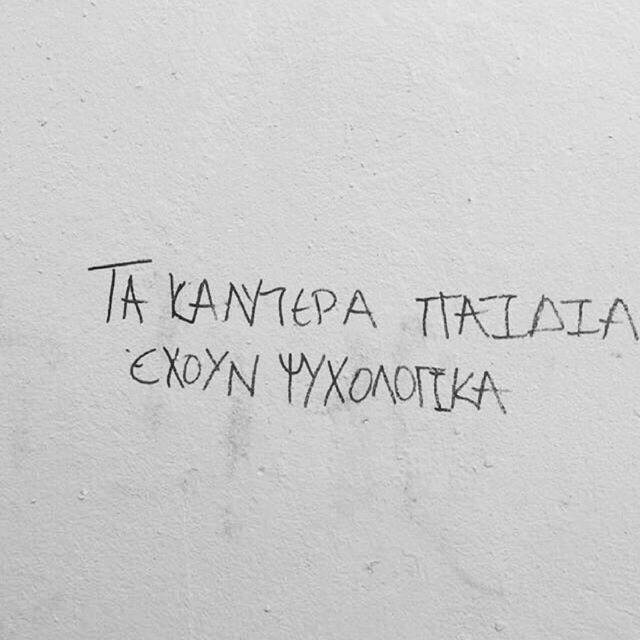 ΤΑ ΚΑΛΥΤΕΡΑ ΠΑΙΔΙΑ
ΈΧΟΥΝ ΨΥΧΟΛΟΓΙΚΑ